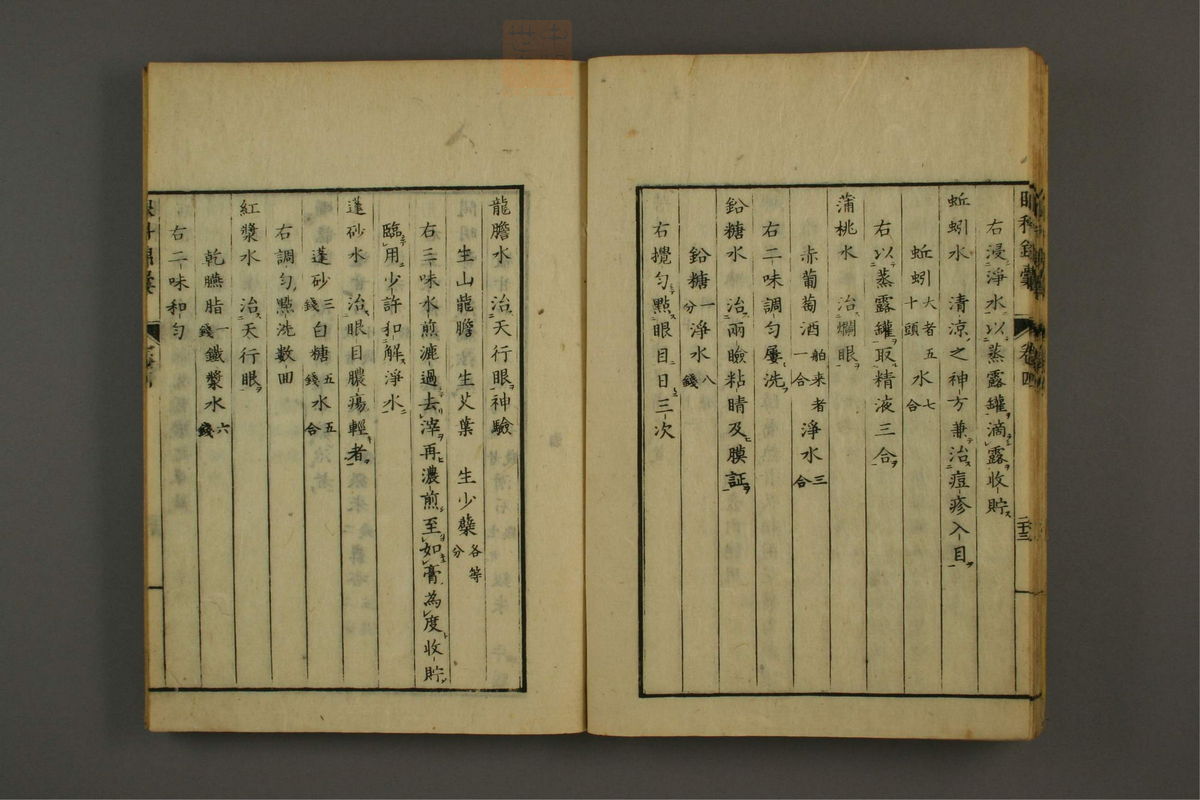 眼科錦囊 卷四 二十三
右浸淨水以蒸露罐滴露收貯
蚯蚓水 清涼之神方兼治痘疹入目
蚯蚓大者五十頭 水七合
右以蒸露罐取精液三合
蒲桃水 治爛眼
赤葡萄酒舶来者一合 淨水三合
右二味調勻屢洗
鉛糖水 治兩瞼粘睛及膜証
鉛糖一分 淨水八錢
右攪勻點眼目日三次
龍膽水 治天行眼神驗
生山龍膽 生艾葉 生少蘗各等分
右三味水煎漉過去滓再濃煎至如膏為度收貯
臨用少許扣解淨水
蓬砂水 治眼目膿瘍輕者
蓬砂三錢 白糖五錢 水五合
右調勻點洗數回
紅漿水 治天行眼
乾臙脂一錢 鐵漿水六錢
右二味和勻